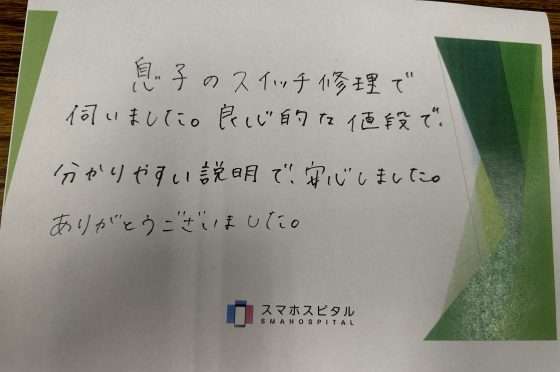 息子のスイッチ修理で
伺いました。良心的な値段で、
分かりやすい説明で、安心しました。
ありがとうございました。
スマホスピタル
SMAHOSPITAL